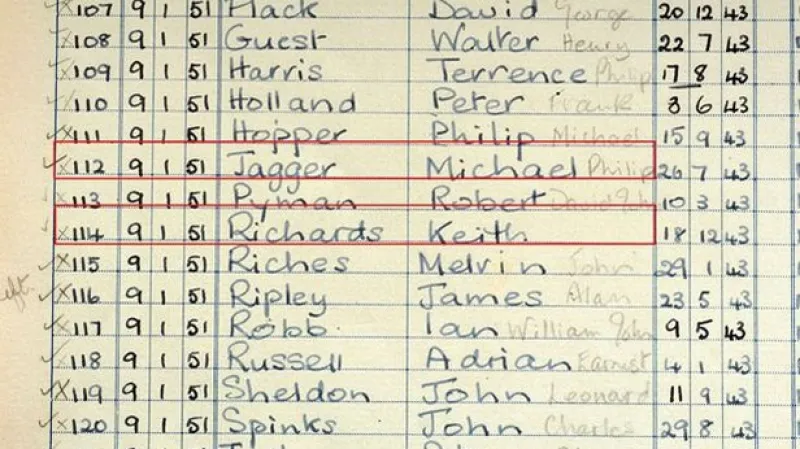 ×107 9 1 51 Hack David George 20 12 43
×108 9 1 51 Guest Walter Henry 22 7 43
×109 9 1 51 Harris Terrence Philip 17 8 43
110 9 1 51 Holland Peter Frank 3 6 43
×111 9 1 51 Hopper Philip Michael 15 9 43
×112 9 1 51 Jagger Michael Philip 26 7 43
×113 9 1 51 Pyman Robert David John 10 3 43
×114 9 1 51 Richards Keith 18 12 43
×115 9 1 51 Riches Melvin John 29 1 43
left ×116 9 1 51 Ripley James Alan 23 5 43
×117 9 1 51 Robb Ian William John 9 5 43
118 9 1 51 Russell Adrian Earnest 4 1 43
×119 9 1 51 Sheldon John Leonard 11 9 43
×120 9 1 51 Spinks John Charles 29 8 43